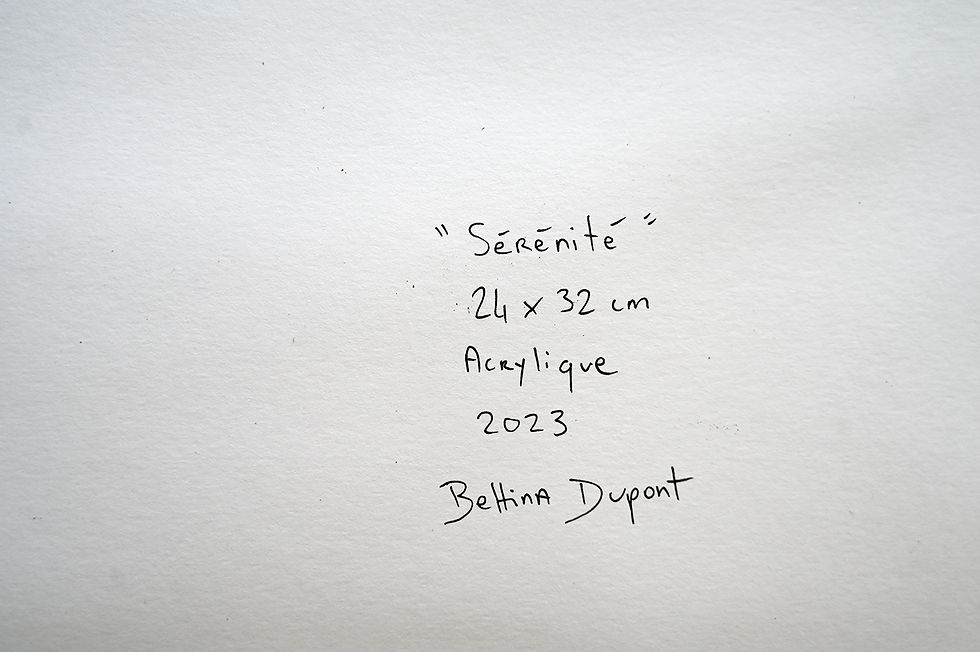 "Sérénité"
24 x 32 cm
Acrylique
2023
Bettina Dupont